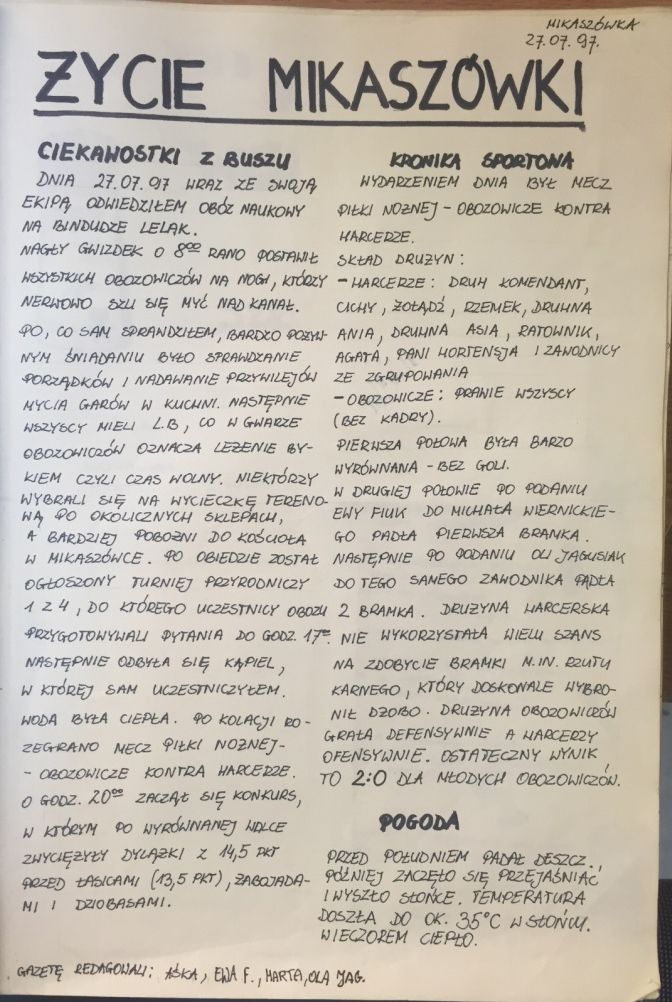 MIKASZÓWKA
27.07.97.
ŻYCIE MIKASZÓWKI
CIEKAWOSTKI Z BUSZU
DNIA 27.07.97 WRAZ ZE SWOJĄ
EKIPĄ ODWIEDZIŁEM OBÓZ NAUKOWY
NA BINDUDZE LELAK.
NAGŁY GWIZDEK O 8⁰⁰ RANO POSTAWIŁ
WSZYSTKICH OBOZOWICZÓW NA NOGI, KTÓRZY
NERWOWO SZLI SIĘ MYĆ NAD KANAŁ.
PO, CO SAM SPRAWDZIŁEM, BARDZO POŻYW-
NYM ŚNIADANIU BYŁO SPRAWDZANIE
PORZĄDKÓW I NADAWANIE PRZYWILEJÓW
MYCIA GARÓW W KUCHNI. NASTĘPNIE
WSZYSCY MIELI L.B, CO W GWARZE
OBOZOWICZÓW OZNACZA LEŻENIE BY-
KIEM CZYLI CZAS WOLNY. NIEKTÓRZY
WYBRALI SIĘ NA WYCIECZKĘ TERENO-
WĄ PO OKOLICZNYCH SKLEPACH,
A BARDZIEJ POBOŻNI DO KOŚCIOŁA
W MIKASZÓWCE. PO OBIEDZIE ZOSTAŁ
OGŁOSZONY TURNIEJ PRZYRODNICZY
1 Z 4, DO KTÓREGO UCZESTNICY OBOZU
PRZYGOTOWYWALI PYTANIA DO GODZ. 17⁰⁰.
NASTĘPNIE ODBYŁA SIĘ KĄPIEL,
W KTÓREJ SAM UCZESTNICZYŁEM.
WODA BYŁA CIEPŁA. PO KOLACJI RO-
ZEGRANO MECZ PIŁKI NOŻNEJ-
- OBOZOWICZE KONTRA HARCERZE.
O GODZ. 20⁰⁰ ZACZĄŁ SIĘ KONKURS,
W KTÓRYM PO WYRÓWNANEJ WALCE
ZWYCIĘŻYŁY DYLĄŻKI Z 14,5 PKT
PRZED ŁASICAMI (13,5 PKT), ZABOJADA-
MI I DZIOBASAMI.
KRONIKA SPORTOWA
WYDARZENIEM DNIA BYŁ MECZ
PIŁKI NOŻNEJ - OBOZOWICZE KONTRA
HARCERZE.
SKŁAD DRUŻYN:
- HARCERZE: DRUH KOMENDANT,
CICHY, ŻOŁĄDŹ, RZEMEK, DRUHNA
ANIA, DRUHNA ASIA, RATOWNIK,
AGATA, PANI HORTENSJA I ZAWODNICY
ZE ZGRUPOWANIA
- OBOZOWICZE: PRAWIE WSZYSCY
(BEZ KADRY).
PIERWSZA POŁOWA BYŁA BARZO
WYRÓWNANA - BEZ GOLI.
W DRUGIEJ POŁOWIE PO PODANIU
EWY FIUK DO MICHAŁA WIERNICKIE-
GO PADŁA PIERWSZA BRAMKA.
NASTĘPNIE PO PODANIU OLI JAGUSIAK
DO TEGO SAMEGO ZAWODNIKA PADŁA
2 BRAMKA. DRUŻYNA HARCERSKA
NIE WYKORZYSTAŁA WIELU SZANS
NA ZDOBYCIE BRAMKI M.IN. RZUTU
KARNEGO, KTÓRY DOSKONALE WYBRO-
NIŁ DZOBO. DRUŻYNA OBOZOWICZÓW
GRAŁA DEFENSYWNIE A HARCERZY
OFENSYWNIE. OSTATECZNY WYNIK
TO 2:0 DLA MŁODYCH OBOZOWICZÓW.
POGODA
PRZED POŁUDNIEM PADAŁ DESZCZ.,
PÓŹNIEJ ZACZĘŁO SIĘ PRZEJAŚNIAĆ
I WYSZŁO SŁOŃCE. TEMPERATURA
DOSZŁA DO OK. 35°C W SŁOŃCU.
WIECZOREM CIEPŁO.
GAZETĘ REDAGOWALI: AŚKA, EWA F., MARTA, OLA JAG.